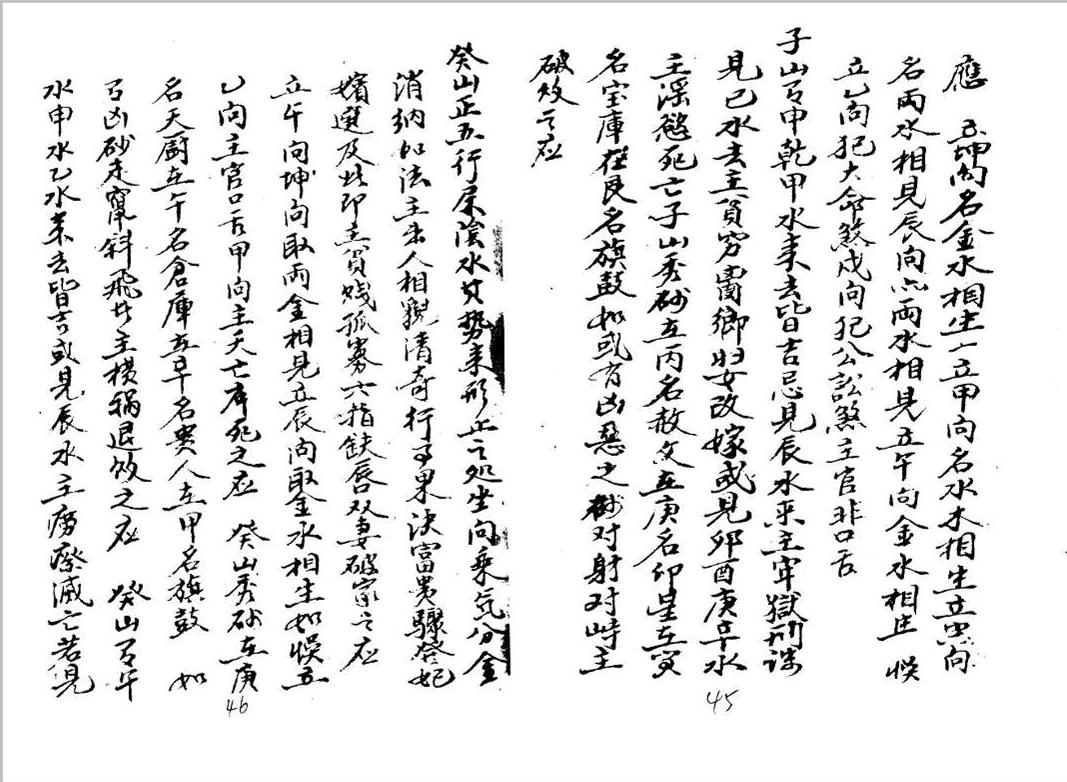 應 立坤向名金水相生一立甲向名水木相生立丙向
名兩水相見辰向亦兩水相見立午向金水相生 悞
立乙向犯大命煞戌向犯公訟煞主官非口舌
子山可申乾甲水来去皆吉忌見辰水来主牢獄刑誅
見巳水去主貧窮离鄉妇女改嫁或見卯酉庚辛水
主淫慾死亡子山秀砂在丙名赦文在庚名印星在寅
名宝庫在艮名旗鼓如或有凶惡之砂对射对峙主
破敗之应
45
癸山正五行屬陰水其势来形止之処坐向乘気分金
消納如法主出人相貌清奇行事果决富貴驟發妃
嬪選及此即主貧賤孤寡六指缺唇双妻破家之应
立午向坤向取兩金相見立辰向取金水相生如悞立
乙向主官口舌甲向主夭亡痒死之应 癸山秀砂在庚
名天厨在午名倉庫在辛名贵人在甲名旗鼓 如
有凶砂走竄斜飛者主横禍退敗之应 癸山可午
水申水乙水来去皆吉或見辰水主痨瘵滅亡若見
46